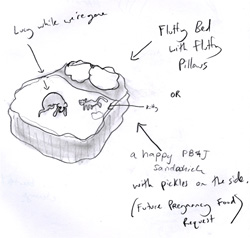 Lucy while we're gone
Fluffy Bed
with Fluffy
Pillows
OR
Kitty
a happy PB&J
Sandwich
with pickles on the side.
(Future Pregnancy Food
Request)